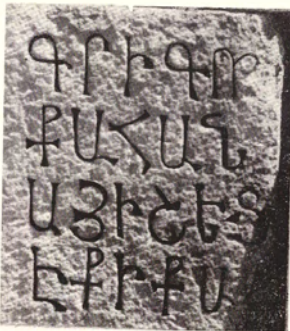 ԳՐԻԳՈՐ
ՔԱՀԱՆ
ԱՅԻՇԵՑ
ԷՔԻՔՍ